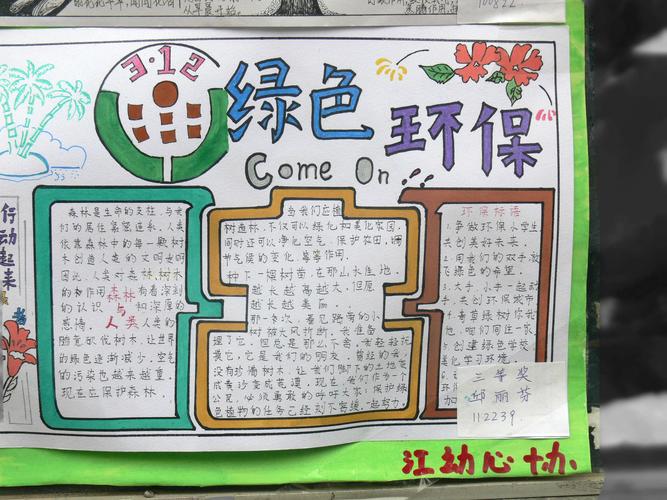 3·12
绿色
环保
Come On
行
动
起
来
森林是生命的支柱,与我
们的居住息息相关,人类
依靠森林中的每一颗树
木创造人类的文明
因此,人类对森林,树木
的和作用森林有着深刻
的认识与和深厚的
感情。人类人类的
的绿色逐渐减少,空气
的污染也越来越重,
现在应保护森林。
当我们应植
树造林,不仅可以绿化和美化家园,
同时还可以净化空气、保护农田,调
节气候的变化等等作用。
种下一棵树苗,在那山水佳地,
越长越高越大,但愿
越长越美丽。
那一次,看见路旁的小
树被大风折断,我准备
没有珍惜树木,让我们脚下的土地变
成黄沙变成荒漠,现在,我们作为一个
公民,必须勇敢的呼吁大家:保护绿
色植物的任务已经刻不容缓,一起努力。
环保标语
1.争做环保小学生
共创美好未来。
2.用我们的双手放
飞绿色的希望。
3.大手,小手一起动
手,共创环保城市
5.
与创建绿色学校
美化学习环境
6.
三等奖
邱丽芬
112239
江幼心协
100822